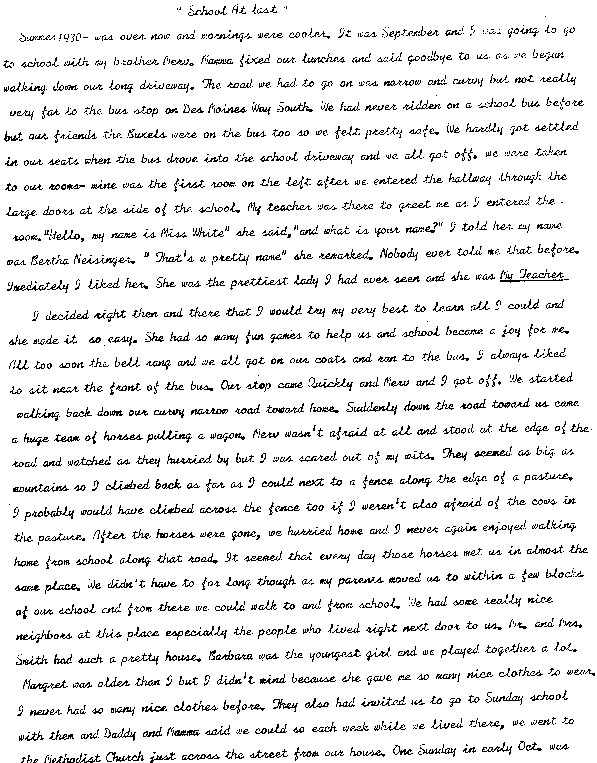 " School At last "
Summer 1930- was over now and mornings were cooler. It was September and I was going to go
to school with my brother Merv. Mamma fixed our lunches and said goodbye to us as we began
walking down our long driveway. The road we had to go on was narrow and curvy but not really
very far to the bus stop on Des Moines Way South. We had never ridden on a school bus before
but our friends the Buxels were on the bus too so we felt pretty safe. We hardly got settled
in our seats when the bus drove into the school driveway and we all got off. we were taken
to our rooms- mine was the first room on the left after we entered the hallway through the
large doors at the side of the school. My teacher was there to greet me as I entered the
room. "Hello, my name is Miss White" she said, "and what is your name?" I told her my name
was Bertha Neisinger. " That's a pretty name" she remarked. Nobody ever told me that before.
Imediately I liked her. She was the prettiest lady I had ever seen and she was My Teacher
I decided right then and there that I would try my very best to learn all I could and
she made it so easy. She had so many fun games to help us and school became a joy for me.
All too soon the bell rang and we all got on our coats and ran to the bus. I always liked
to sit near the front of the bus. Our stop came Quickly and Merv and I got off. We started
walking back down our curvy narrow road toward home. Suddenly down the road toward us came
a huge team of horses pulling a wagon. Merv wasn't afraid at all and stood at the edge of the
road and watched as they hurried by but I was scared out of my wits. They seemed as big as
mountains so I climbed back as far as I could next to a fence along the edge of a pasture.
I probably would have climbed across the fence too if I weren't also afraid of the cows in
the pasture. After the horses were gone, we hurried home and I never again enjoyed walking
home from school along that road. It seemed that every day those horses met us in almost the
same place. We didn't have to for long though as my parents moved us to within a few blocks
of our school and from there we could walk to and from school. We had some really nice
neighbors at this place especially the people who lived right next door to us. Mr. and Mrs.
Smith had such a pretty house. Barbara was the youngest girl and we played together a lot.
Margret was older than I but I didn't mind because she gave me so many nice clothes to wear.
I never had so many nice clothes before. They also had invited us to go to Sunday school
with them and Daddy and Mamma said we could so each week while we lived there, we went to
the Methodist Church just across the street from our house. One Sunday in early Oct. was